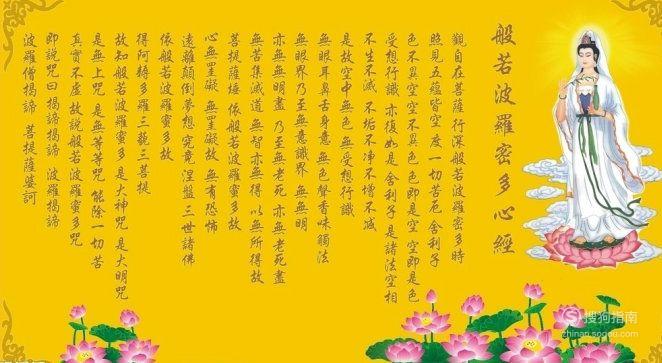 般若波羅密多心經
觀自在菩薩 行深般若波羅密多時
照見五蘊皆空 度一切苦厄 舍利子
色不異空 空不異色 色即是空 空即是色
受想行識 亦復如是 舍利子 是諸法空相
不生不滅 不垢不凈 不增不減
是故空中無色 無受想行識
無眼耳鼻舌身意 無色聲香味觸法
無眼界 乃至無意識界 無無明
亦無無明盡 乃至無老死 亦無老死盡
無苦集滅道 無智亦無得 以無所得故
菩提薩埵 依般若波羅蜜多故
心無罣礙 無罣礙故 無有恐怖
遠離顛倒夢想 究竟涅盤 三世諸佛
依般若波羅蜜多故
得阿耨多羅三藐三菩提
故知般若波羅蜜多 是大神咒 是大明咒
是無上咒 是無等等咒 能除一切苦
真實不虛 故說般若波羅蜜多咒
即說咒曰 揭諦揭諦 波羅揭諦
波羅僧揭諦 菩提薩婆訶
搜狗指南
zhinan.sogou.com